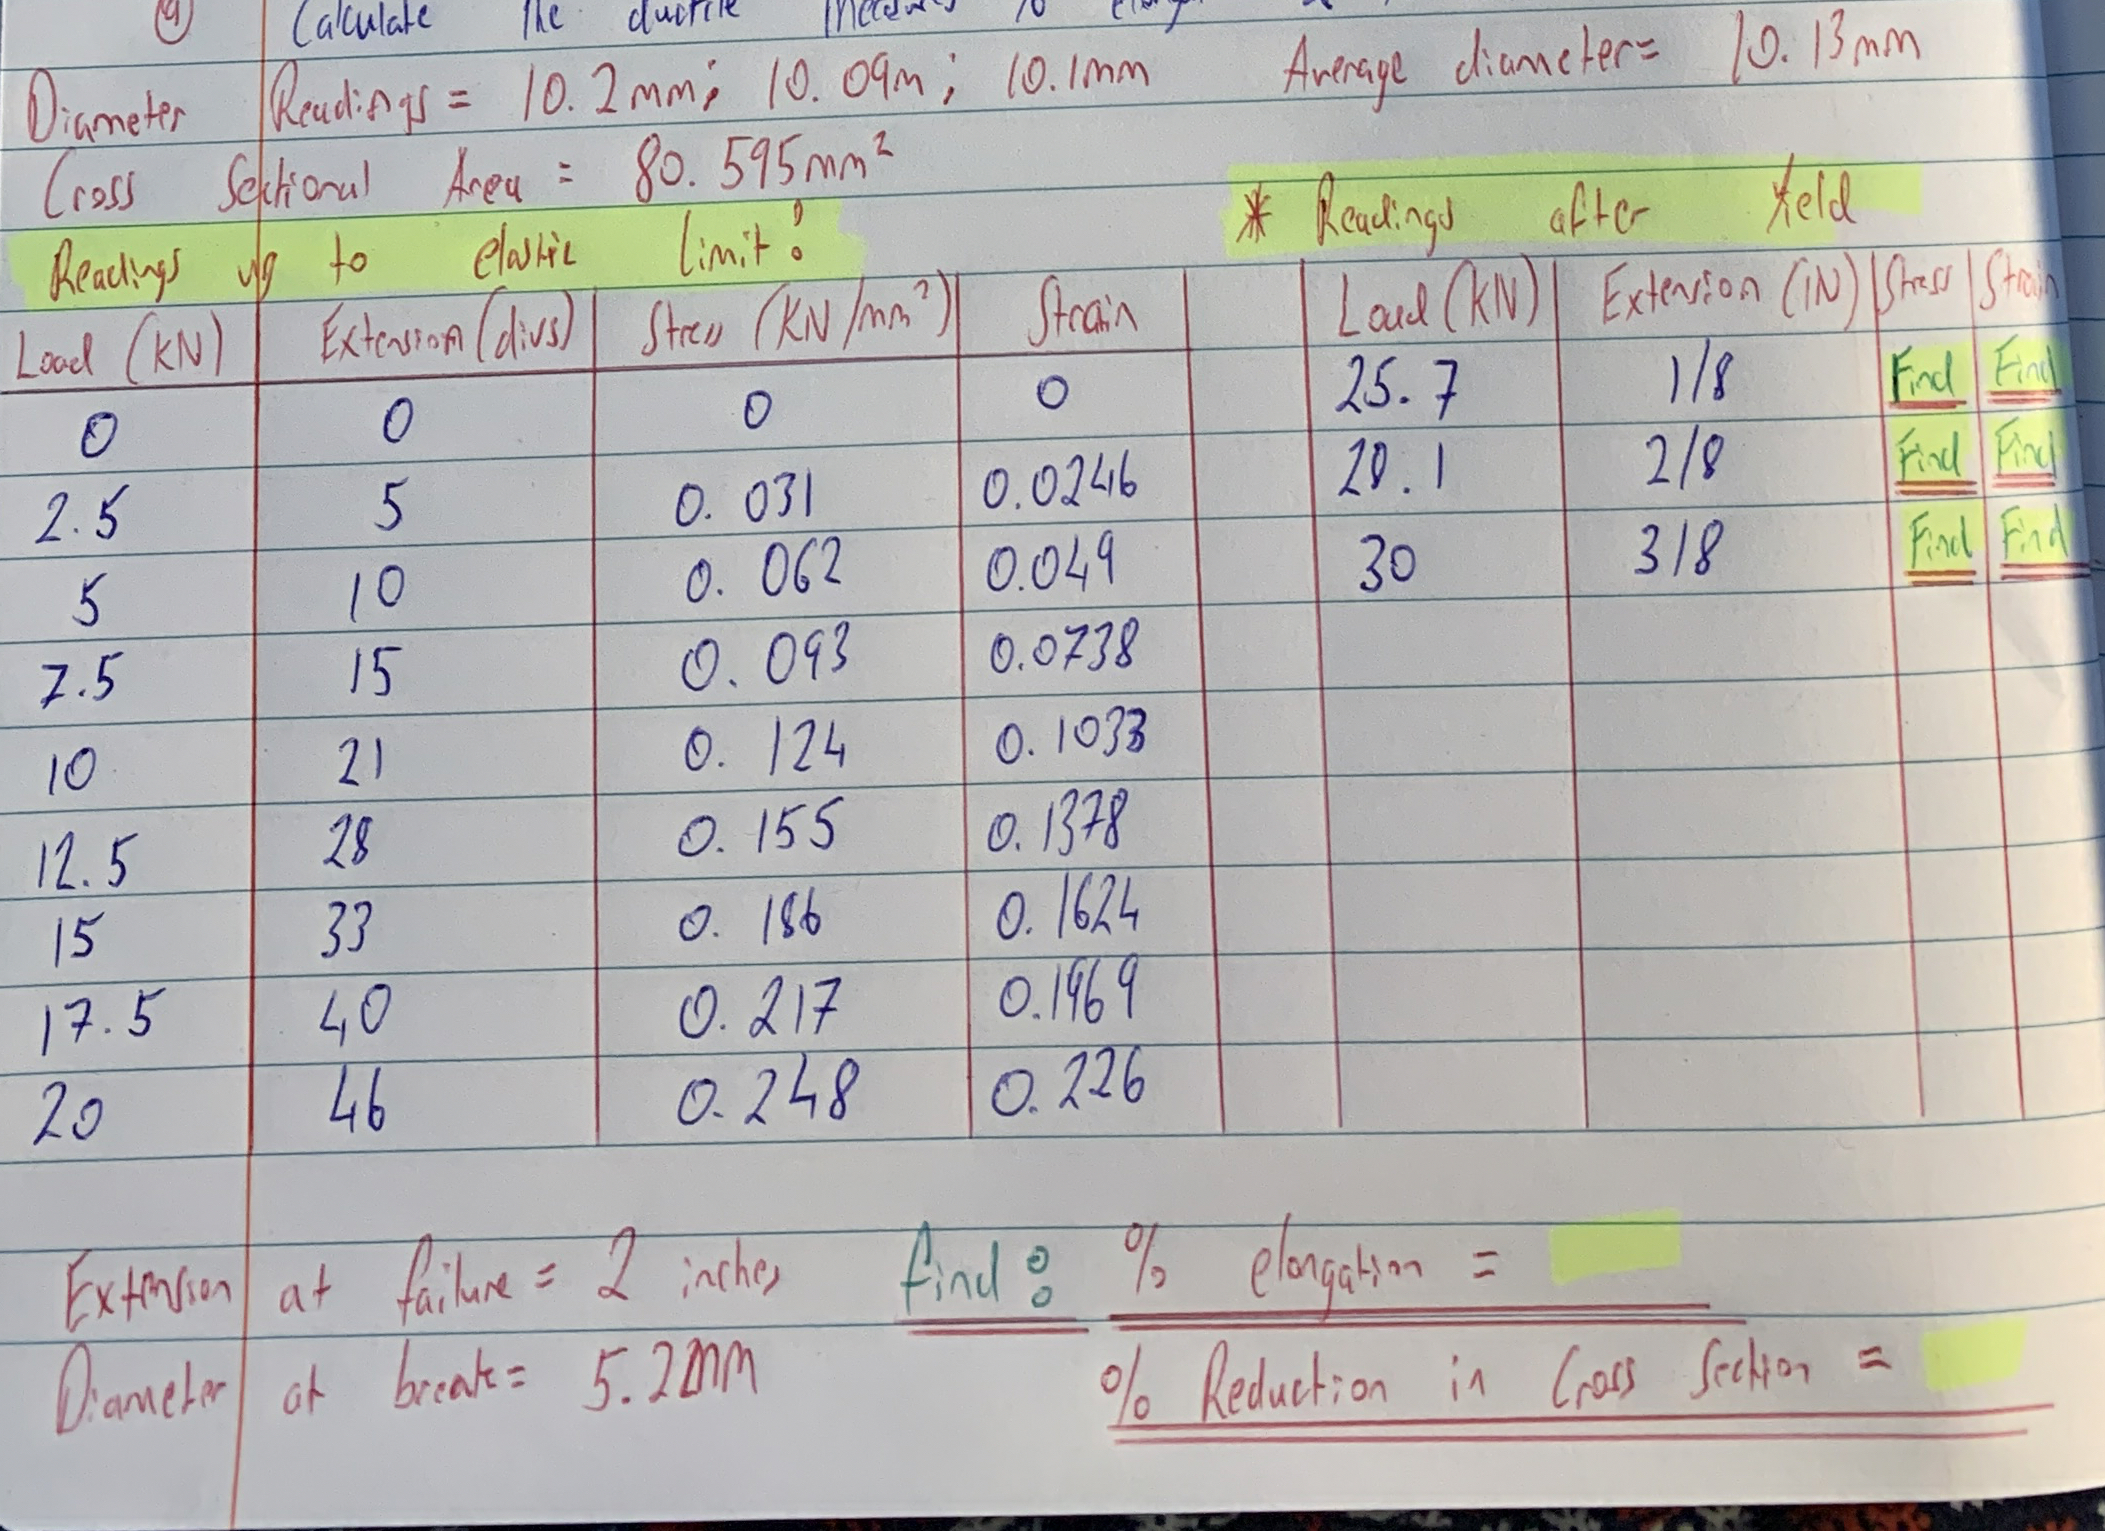 (9) Calculate the ductile
Diameter Readings = 10.2mm; 10.09m; 10.1mm Average diameter= 10.13mm
Cross Sectional Area = 80.595mm²
Readings up to elastic limit: * Readings after Yield
Load (KN) Extension (divs) Stress (KN/mm²) Strain Load (KN) Extension (IN) Stress Strain
0 0 0 0 25.7 1/8 Find Find
2.5 5 0.031 0.0246 28.1 2/8 Find Find
5 10 0.062 0.049 30 3/8 Find Find
7.5 15 0.093 0.0738
10 21 0.124 0.1033
12.5 28 0.155 0.1378
15 33 0.186 0.1624
17.5 40 0.217 0.1969
20 46 0.248 0.226
Extension at failure = 2 inches find: % elongation =
Diameter at break= 5.2mm % Reduction in Cross Section =